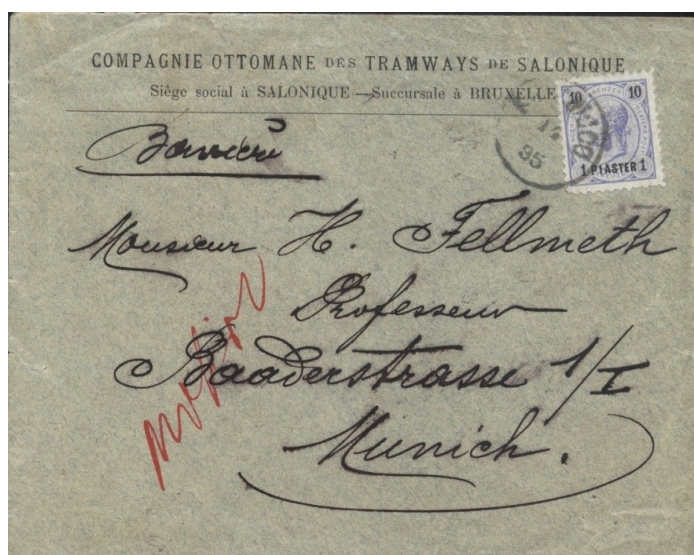 COMPAGNIE OTTOMANE DES TRAMWAYS DE SALONIQUE
Siège social à SALONIQUE — Succursale à BRUXELLE
10 10
1 PIASTER 1
95
Bavière
Monsieur H. Fellmeth
Professeur
Baaderstrasse 1/I
Munich.